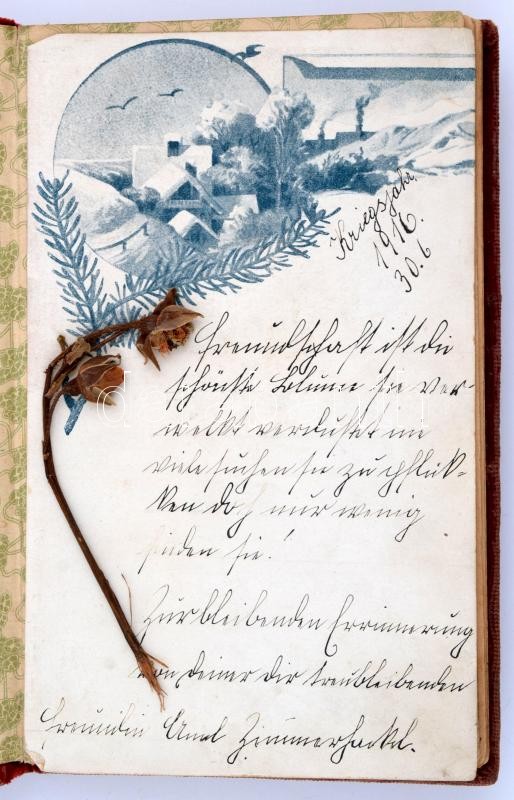 Kriegsjahr
1916.
30.6
Freundschaft ist die
schönste Blume sie ver-
welkt verdustet nie
viele suchen sie zu pflük-
ken doch nur wenig
finden sie!
Zur bleibenden Errinnerung
von deiner dir treubleibenden
Freundin